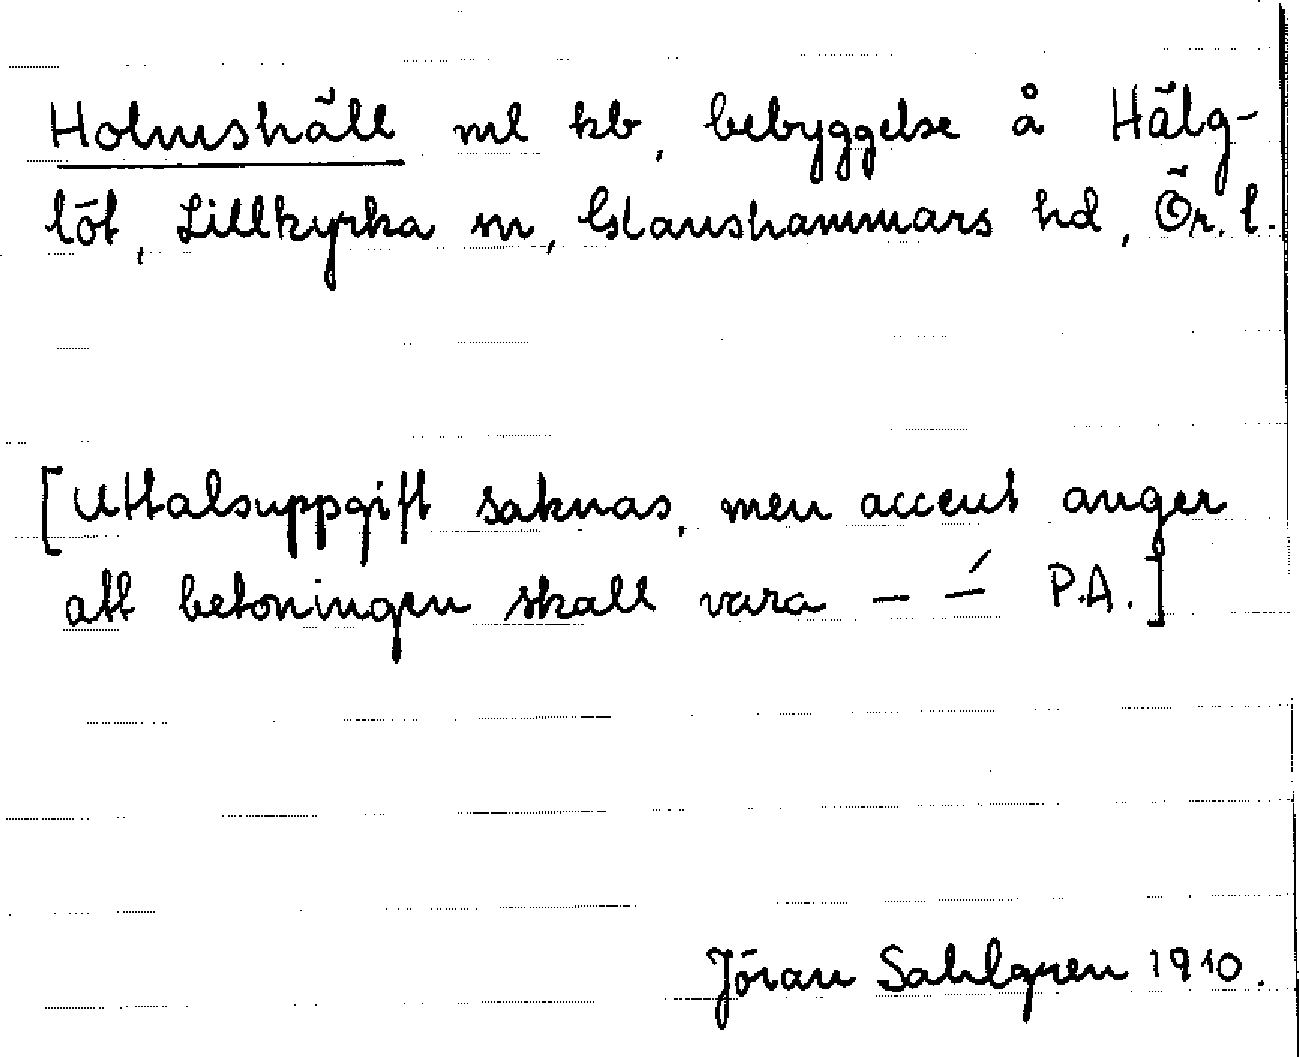 Holmshäll ml kb, bebyggelse å Hälg-
löt, Lillkyrka sn, Glanshammars hd, Ör. l.
[Uttalsuppgift saknas, men accent anger
att betoningen skall vara – –́ P.A.]
Jöran Sahlgren 1910.